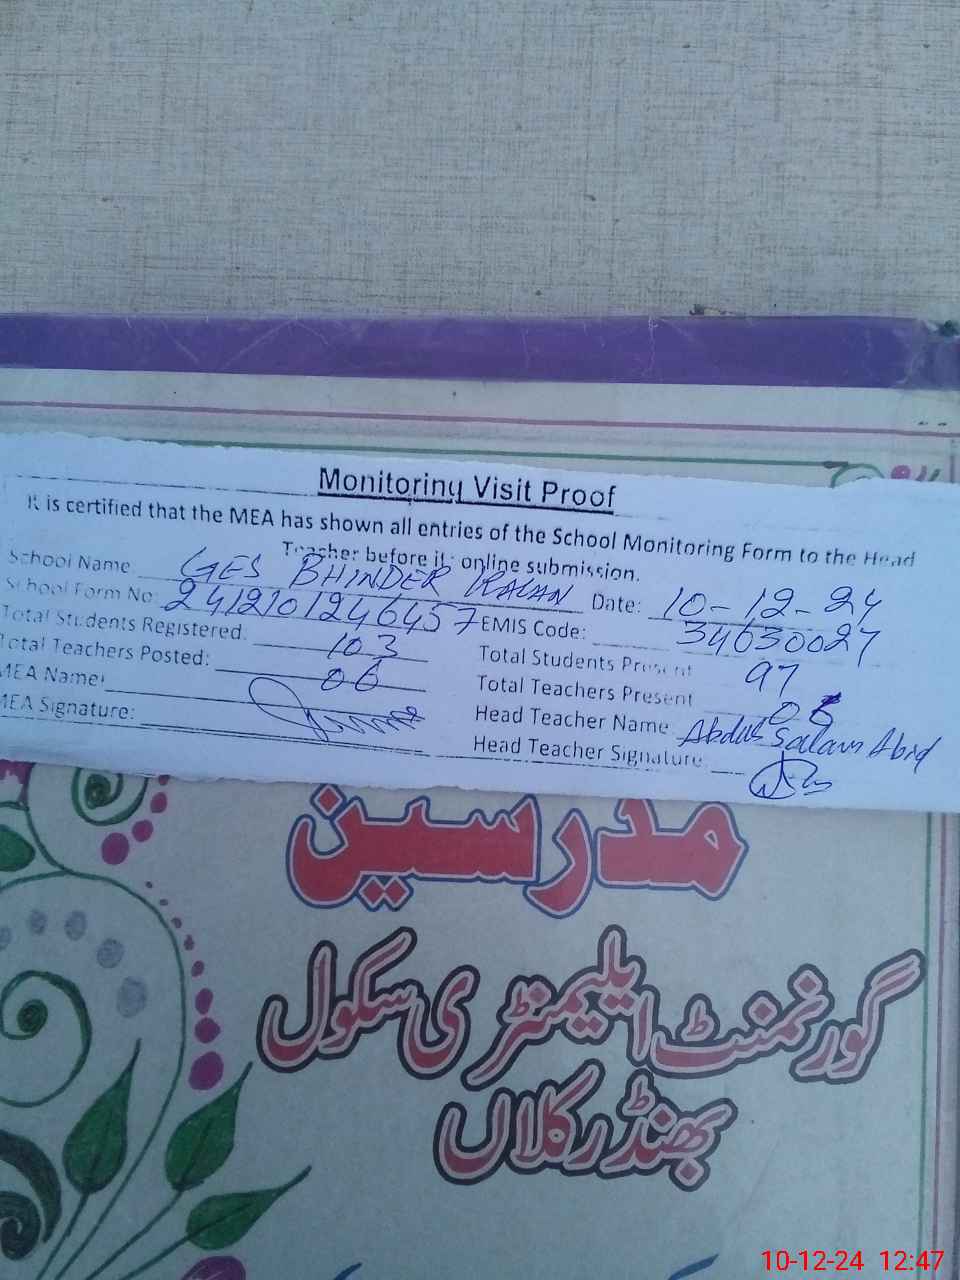 Monitoring Visit Proof
It is certified that the MEA has shown all entries of the School Monitoring Form to the Head
Teacher before it's online submission.
School Name GES BHINDER KALAN Date: 10-12-24
School Form No: 2412101246457 EMIS Code: 34630027
Total Students Registered: 103 Total Students Present 97
Total Teachers Posted: 06 Total Teachers Present 06
MEA Name: Head Teacher Name Abdus Salam Abid
MEA Signature: Head Teacher Signature:
مدرسین
گورنمنٹ ایلیمنٹری سکول
بھنڈر کلاں
10-12-24 12:47